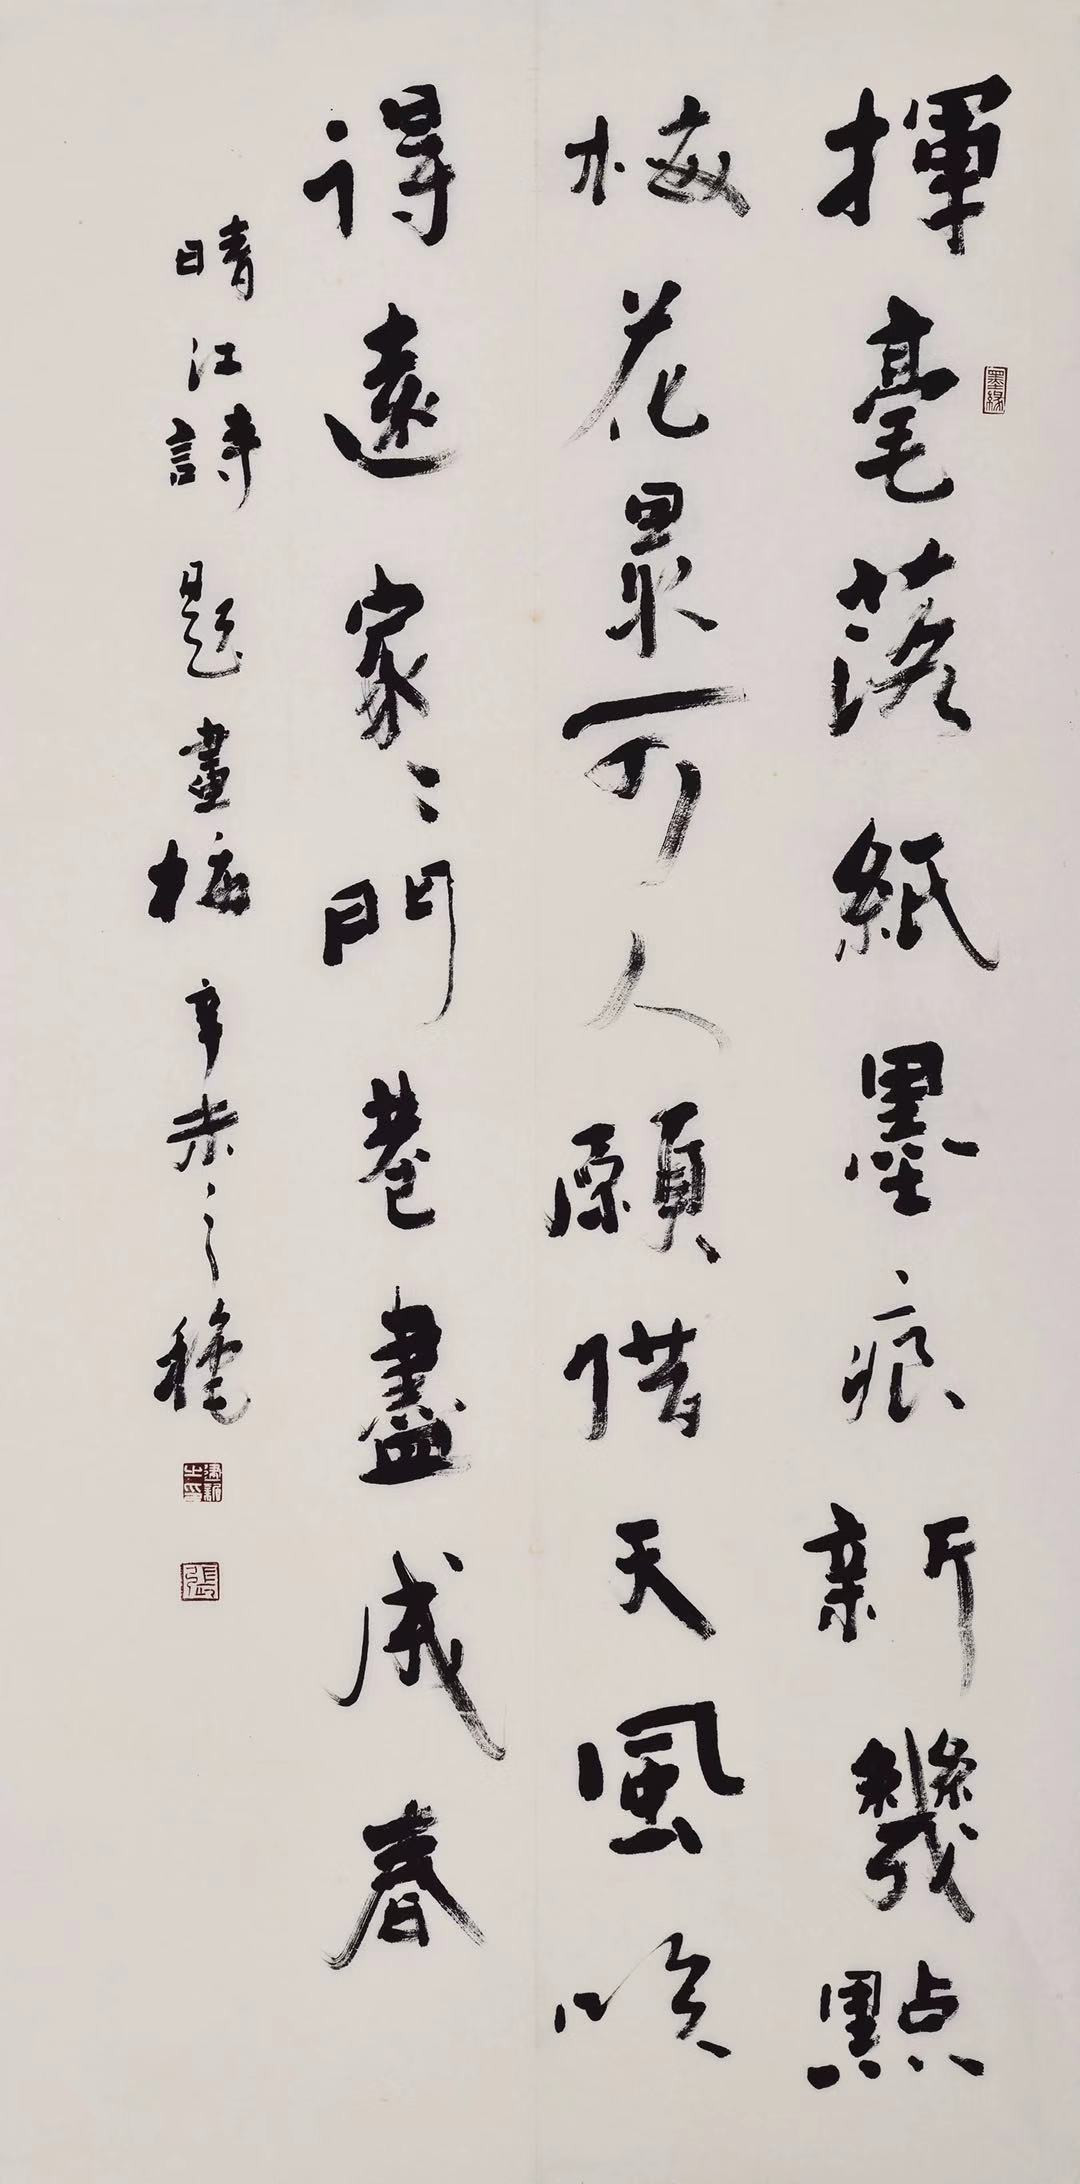 墨緣
揮毫落紙墨痕新幾點
梅花最可人願借天風吹
得遠家々門巷盡成春
晴江詩題畫梅辛未之穐
張